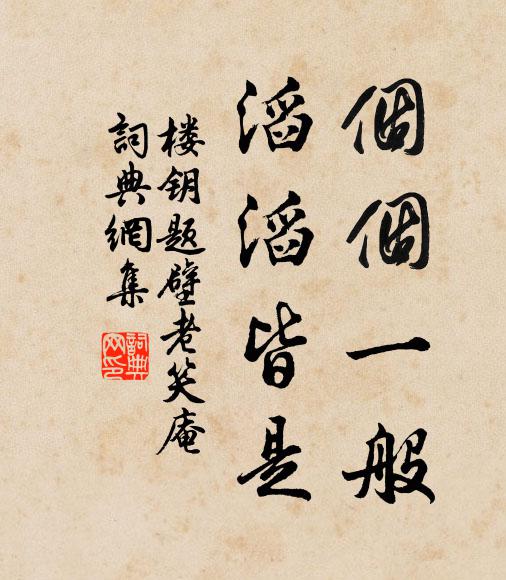 個個一般
滔滔皆是
楼钥题壁老笑庵
詞典網集
詞典网印